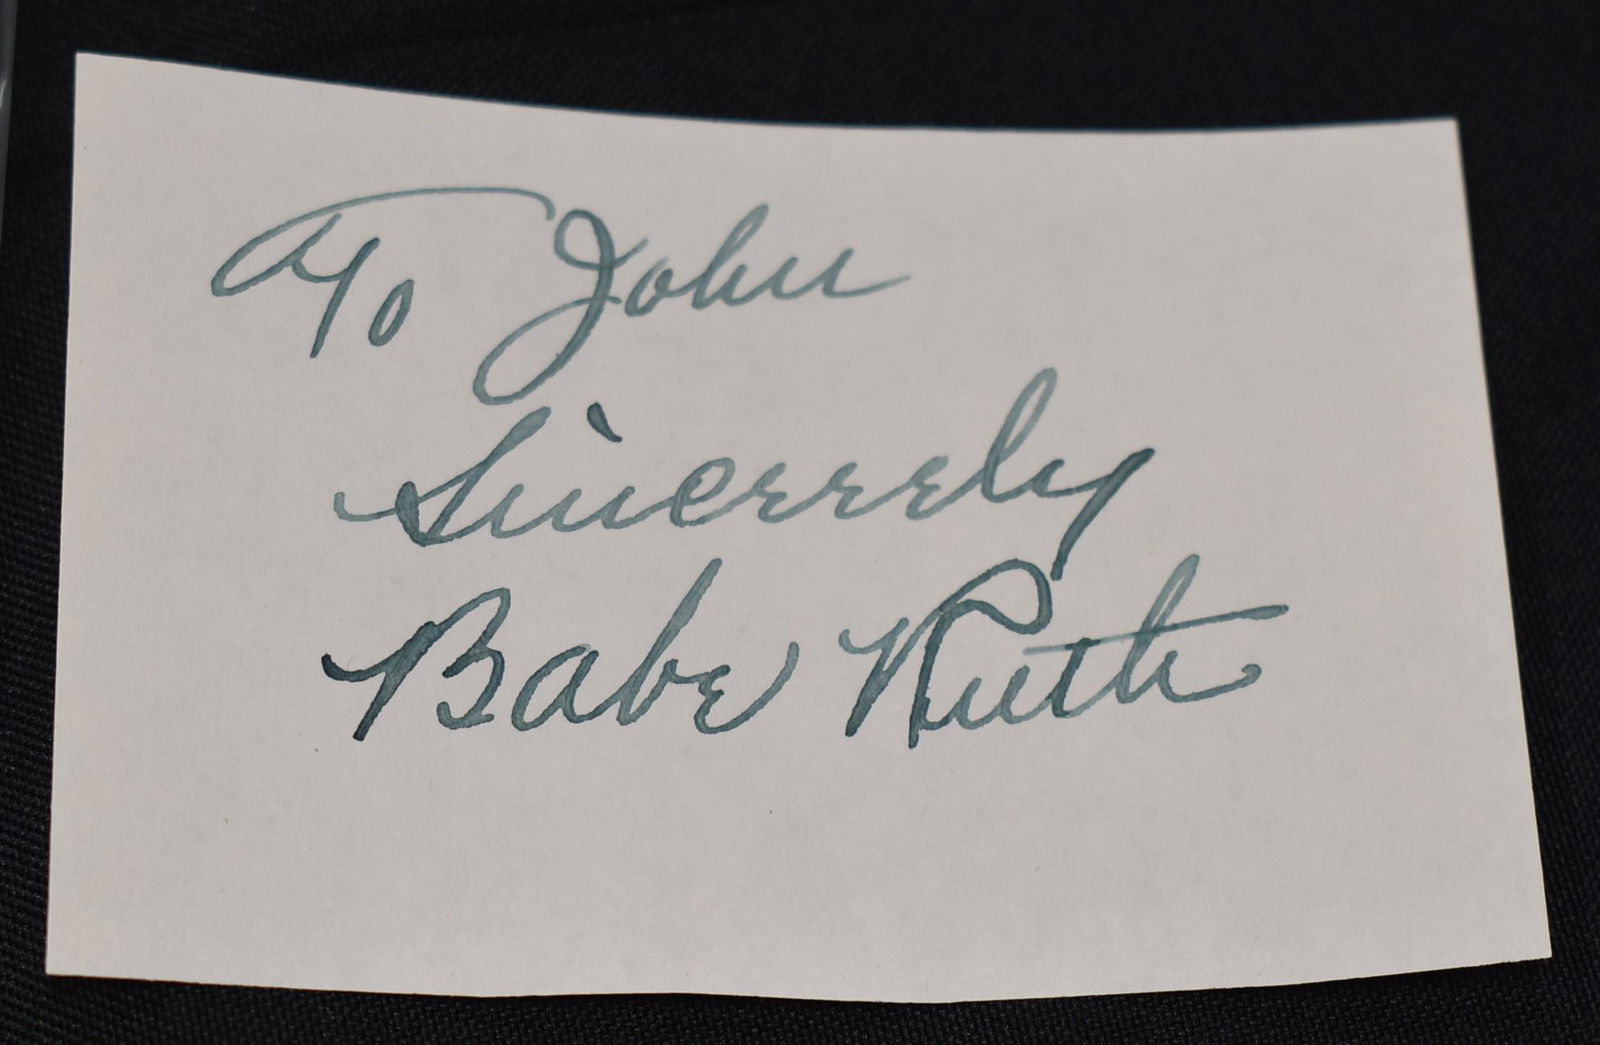 To John
Sincerely
Babe Ruth